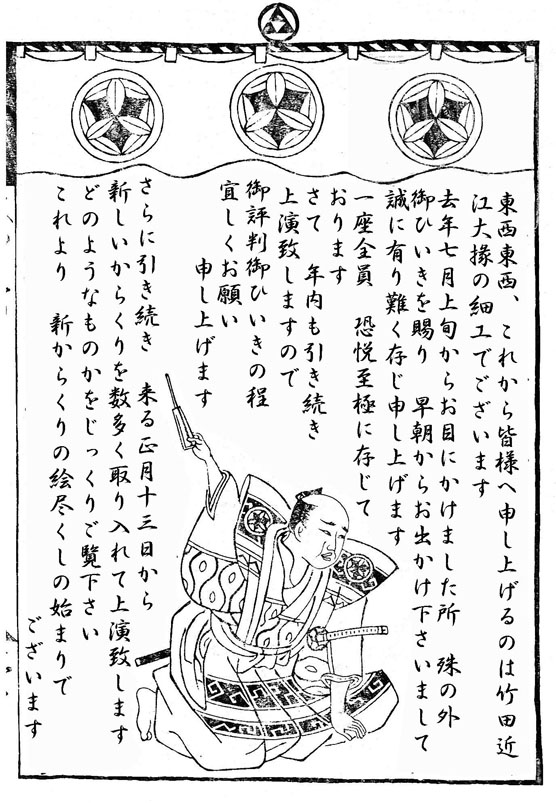 東西東西、これから皆様へ申し上げるのは竹田近
江大掾の細工でございます
去年七月上旬からお目にかけました所 殊の外
御ひいきを賜り 早朝からお出かけ下さいまして
誠に有り難く存じ申し上げます
一座全員 恐悦至極に存じて
おります
さて 年内も引き続き
上演致しますので
御評判御ひいきの程
宜しくお願い
申し上げます
さらに引き続き 来る正月十三日から
新しいからくりを数多く取り入れて上演致します
どのようなものかをじっくりご覧下さい
これより 新からくりの絵尽くしの始まりで
ございます